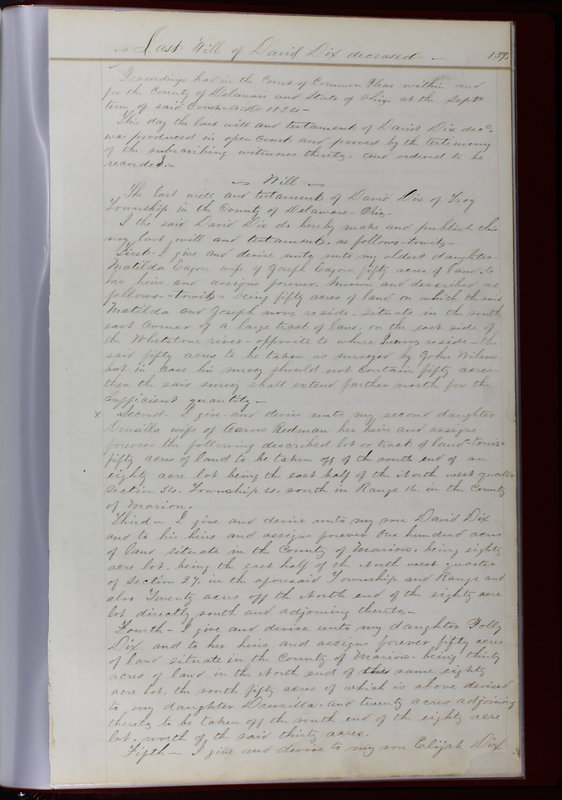 Last Will of David Dix deceased 139
Proceedings had in the Court of Common Pleas within and
for the County of Delaware and State of Ohio, at the Septr
term of said Court A.D. 1834
This day the last will and testament of David Dix decd
was produced in open court and proved by the testimony
of the subscribing witnesses thereto, and ordered to be
recorded.
Will
The last will and testament of David Dix of Troy
Township in the County of Delaware Ohio
I the said David Dix do hereby make and publish this
my last will and testament, as follows to wit
First I give and devise unto my oldest daughter
Matilda wife of Joseph fifty acres of land to
her heirs and assigns forever, known and described as
follows to wit Being fifty acres of land on which the said
Matilda and Joseph now reside, situate in the south
east corner of a large tract of land, on the east side of
the Whetstone river opposite to where I now reside the
said fifty acres to be taken as surveyed by John Wilson
but in case his survey should not contain fifty acres
then the said survey shall extend further north for the
sufficient quantity
x Second I give and devise unto my second daughter
Drusilla wife of Aaron Redman her heirs and assigns
forever the following described lot or tract of land to wit
fifty acres of land to be taken off of the south end of an
eighty acre lot being the east half of the North west quarter
Section 34. Township 4. south in Range 16. in the County
of Marion.
Third I give and devise unto my son David Dix
and to his heirs and assigns forever One hundred acres
of land situate in the County of Marion, being eighty
acre lot, being the east half of the North west quarter
of Section 27 in the aforesaid Township and Range and
also Twenty acres off the North end of the eighty acre
lot directly south and adjoining thereto
Fourth I give and devise unto my daughter Polly
Dix and to her heirs and assigns forever fifty acres
of land situate in the County of Marion being thirty
acres of land in the North end of the same eighty
acre lot, the south fifty acres of which is above devised
to my daughter Drusilla, and twenty acres adjoining
thereto to be taken off the south end of the eighty acre
lot, north of the said thirty acres.
Fifth I give and devise to my son Elijah Dix